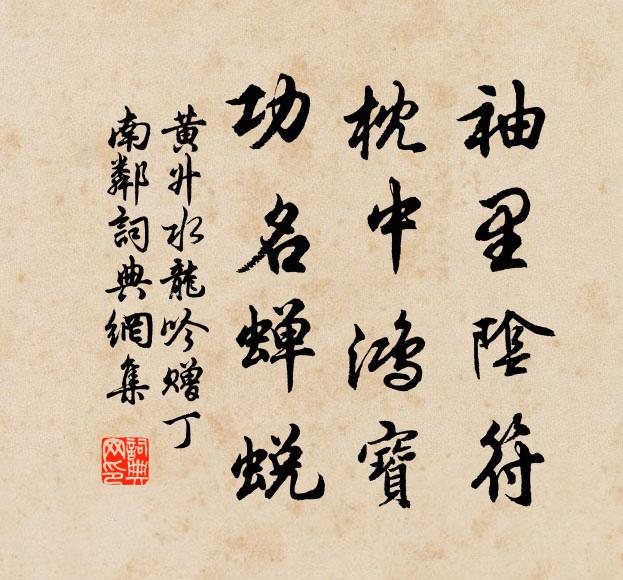 袖里陰符
枕中鴻寶
功名蝉蜕
黄升水龍吟贈丁
南鄰詞典網集
詞典网印